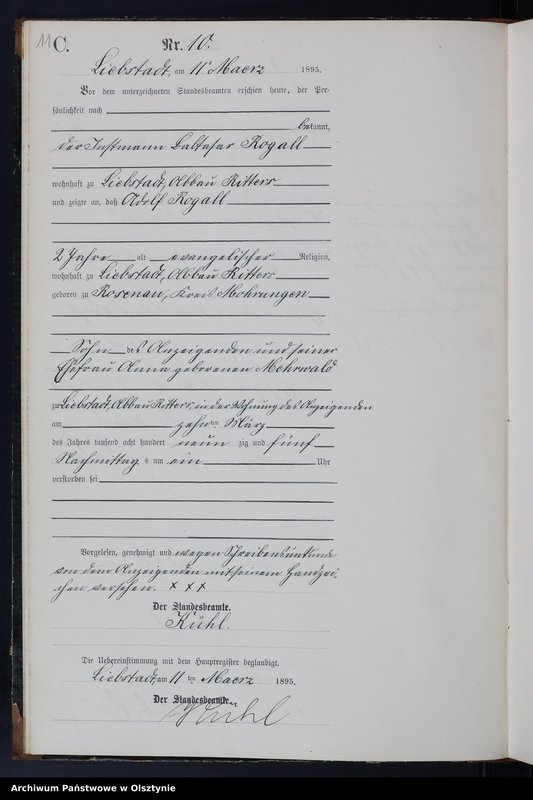 11
C.
Nr. 10.
Liebstadt, am 11ten Maerz 1895.
Vor dem unterzeichneten Standesbeamten erschien heute, der Per-
sönlichkeit nach
bekannt,
der Instmann Baltasar Rogall
wohnhaft zu Liebstadt, Abbau Ritters
und zeigte an, daß Adolf Rogall
2 Jahre alt evangelischer Religion,
wohnhaft zu Liebstadt, Abbau Ritters
geboren zu Rosenau, Kreis Mohrungen
Sohn des Anzeigenden und seiner
Ehefrau Anna geborenen Mehrwald
zu Liebstadt, Abbau Ritters, in der Wohnung des Anzeigenden
am zehnten März
des Jahres tausend acht hundert neunzig und fünf
Nachmittags um ein Uhr
verstorben sei
Vorgelesen, genehmigt und wegen Schreibensunkunde
von dem Anzeigenden mit seinem Handzei-
chen versehen. x x x
Der Standesbeamte.
Kühl.
Die Uebereinstimmung mit dem Hauptregister beglaubigt.
Liebstadt, am 11ten Maerz 1895.
Der Standesbeamte.
Kühl
Archiwum Państwowe w Olsztynie